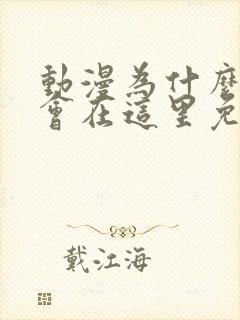 動漫為什麼
會在這里免
戴江海